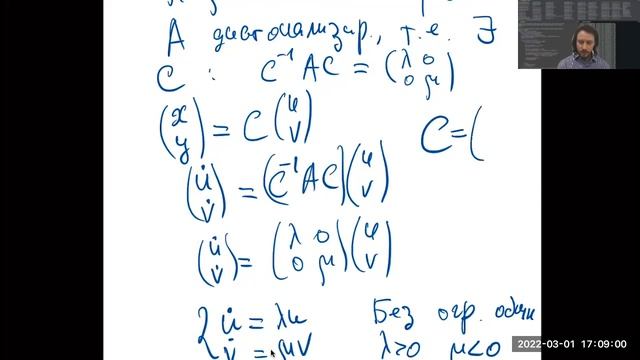 А диагонализир., т.е. ∃
C : C⁻¹AC = (λ 0
0 μ)
(x
y) = C (u
v)
C = (
(u̇
v̇) = (C⁻¹AC) (u
v)
(u̇
v̇) = (λ 0
0 μ) (u
v)
{ u̇ = λu
v̇ = μv
Без огр. общн
λ>0 μ<0
2022-03-01 17:09:00